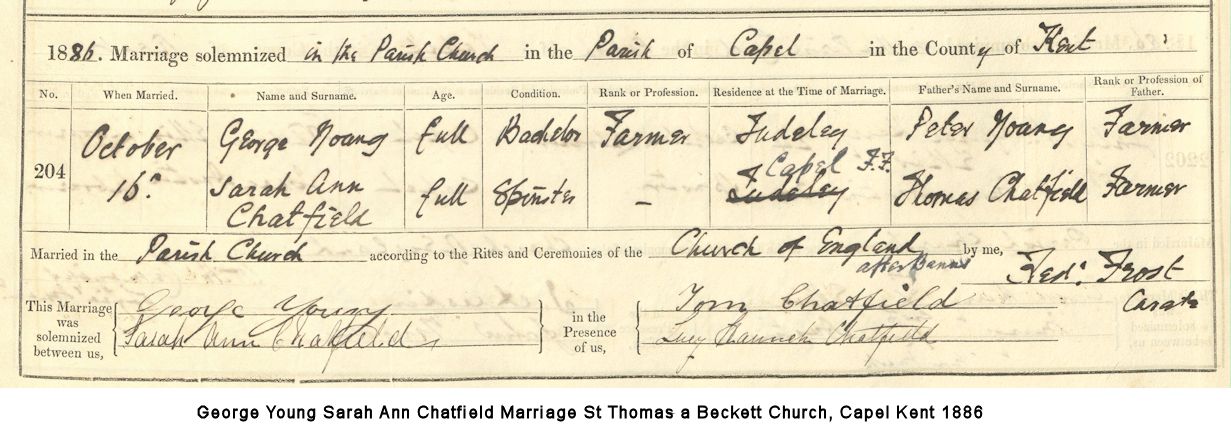 1886. Marriage solemnized in the Parish Church in the Parish of Capel in the County of Kent
No. When Married. Name and Surname. Age. Condition. Rank or Profession. Residence at the Time of Marriage. Father's Name and Surname. Rank or Profession of Father.
204 October 16 George Young full Bachelor Farmer Tudeley Peter Young Farmer
Sarah Ann Chatfield full Spinster – Tudeley Capel F.F. Thomas Chatfield Farmer
Married in the Parish Church according to the Rites and Ceremonies of the Church of England after Banns by me,
Fredk. Frost
Curate
This Marriage was solemnized between us, George Young in the Presence of us, Tom Chatfield
Sarah Ann Chatfield Lucy Hannah Chatfield
George Young Sarah Ann Chatfield Marriage St Thomas a Beckett Church, Capel Kent 1886